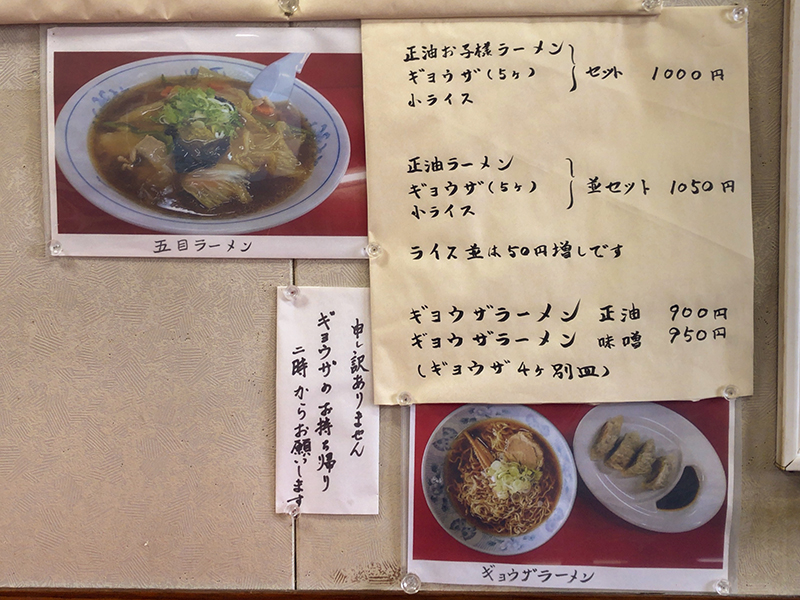 五目ラーメン
正油お子様ラーメン
ギョウザ(5ヶ) セット 1000円
小ライス
正油ラーメン
ギョウザ(5ヶ) 並セット 1050円
小ライス
ライス並は50円増しです
ギョウザラーメン 正油 900円
ギョウザラーメン 味噌 950円
(ギョウザ4ヶ別皿)
申し訳ありません
ギョウザのお持ち帰り
二時からお願いします
ギョウザラーメン